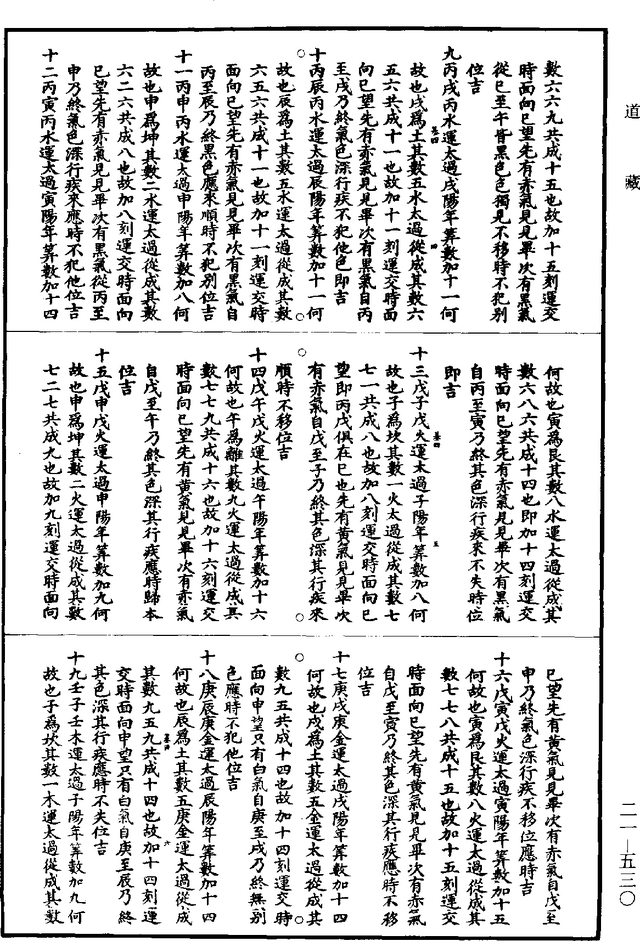 道藏
數六六九共成十五也故加十五刻運交
時面向巳望先有赤氣見見畢次有黑氣
從巳至午皆黑色色獨見不移時不犯別
位吉
九丙戌丙水運太過戌陽年算數加十一何
故也戌為土其數五水太過從成其數六
五六共成十一也故加十一刻運交時面
向巳望先有赤氣見見畢次有黑氣自丙
至戌乃終氣色深行疾不犯他色即吉
十丙辰丙水運太過辰陽年算數加十一何
故也辰為土其數五水運太過從成其數
六五六共成十一也故加十一刻運交時
面向巳望先有赤氣見見畢次有黑氣自
丙至辰乃終黑色應來順時不犯別位吉
十一丙申丙水運太過申陽年算數加八何
故也申為坤其數二水運太過從成其數
六二六共成八也故加八刻運交時面向
巳望先有赤氣見見畢次有黑氣從丙至
申乃終氣色深行疾來應時不犯他位吉
十二丙寅丙水運太過寅陽年算數加十四
何故也寅為艮其數八水運太過從成其
數六八六共成十四也即加十四刻運交
時面向巳望先有赤氣見見畢次有黑氣
自丙至寅乃終其色深行疾來不失時位
即吉
十三戊子戊火運太過子陽年算數加八何
故也子為坎其數一火太過從成其數七
七一共成八也故加八刻運交時面向巳
望即丙戊俱在巳也先有黃氣見見畢次
有赤氣自戊至子乃終其色深其行疾來
順時不移位吉
十四戊午戊火運太過午陽年算數加十六
何故也午為離其數九火運太過從成其
數七七九共成十六也故加十六刻運交
時面向巳望先有黃氣見見畢次有赤氣
自戊至午乃終其色深其行疾應時歸本
位吉
十五戊申戊火運太過申陽年算數加九何
故也申為坤其數二火運太過從成其數
七二七共成九也故加九刻運交時面向
巳望先有黃氣見見畢次有赤氣自戊至
申乃終氣色深行疾不移位應時吉
十六戊寅戊火運太過寅陽年算數加十五
何故也寅為艮其數八火運太過從成其
數七七八共成十五也故加十五刻運交
時面向巳望先有黃氣見見畢次有赤氣
自戊至寅乃終其色深其行疾應時不移
位吉
十七庚戌庚金運太過戌陽年算數加十四
何故也戌為土其數五金運太過從成其
數九五共成十四也故加十四刻運交時
面向申望只有白氣自庚至戌乃終無別
色應時不犯他位吉
十八庚辰庚金運太過辰陽年算數加十四
何故也辰為土其數五庚金運太過從成
其數九五九共成十四也故加十四刻運
交時面向申望只有白氣自庚至辰乃終
其色深其行疾應時不失位吉
十九壬子壬木運太過子陽年算數加九何
故也子為坎其數一木運太過從成其數
二一—五三〇